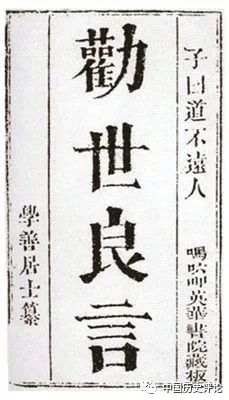 子曰道不遠人
嗎𠯈呷英華書院藏板
勸世良言
學善居士纂
中国历史评论